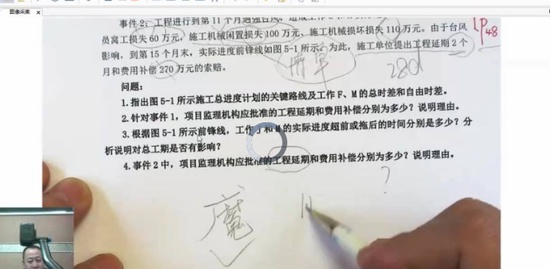 图像采集
事件2：工程进行到第11个月遇强台风，造成工作
员窝工损失60万元、施工机械闲置损失100万元、施工机械损坏损失110万元。由于台风
影响，到第15个月末，实际进度前锋线如图5-1所示。为此，施工单位提出工程延期2个
月和费用补偿270万元的索赔。
问题：
1.指出图5-1所示施工总进度计划的关键路线及工作F、M的总时差和自由时差。
2.针对事件1，项目监理机构应批准的工程延期和费用补偿分别为多少？说明理由。
3.根据图5-1所示前锋线，工作J和M的实际进度超前或拖后的时间分别是多少？分
析说明对总工期是否有影响？
4.事件2中，项目监理机构应批准的工程延期和费用补偿分别为多少？说明理由。
1P48
?
魔